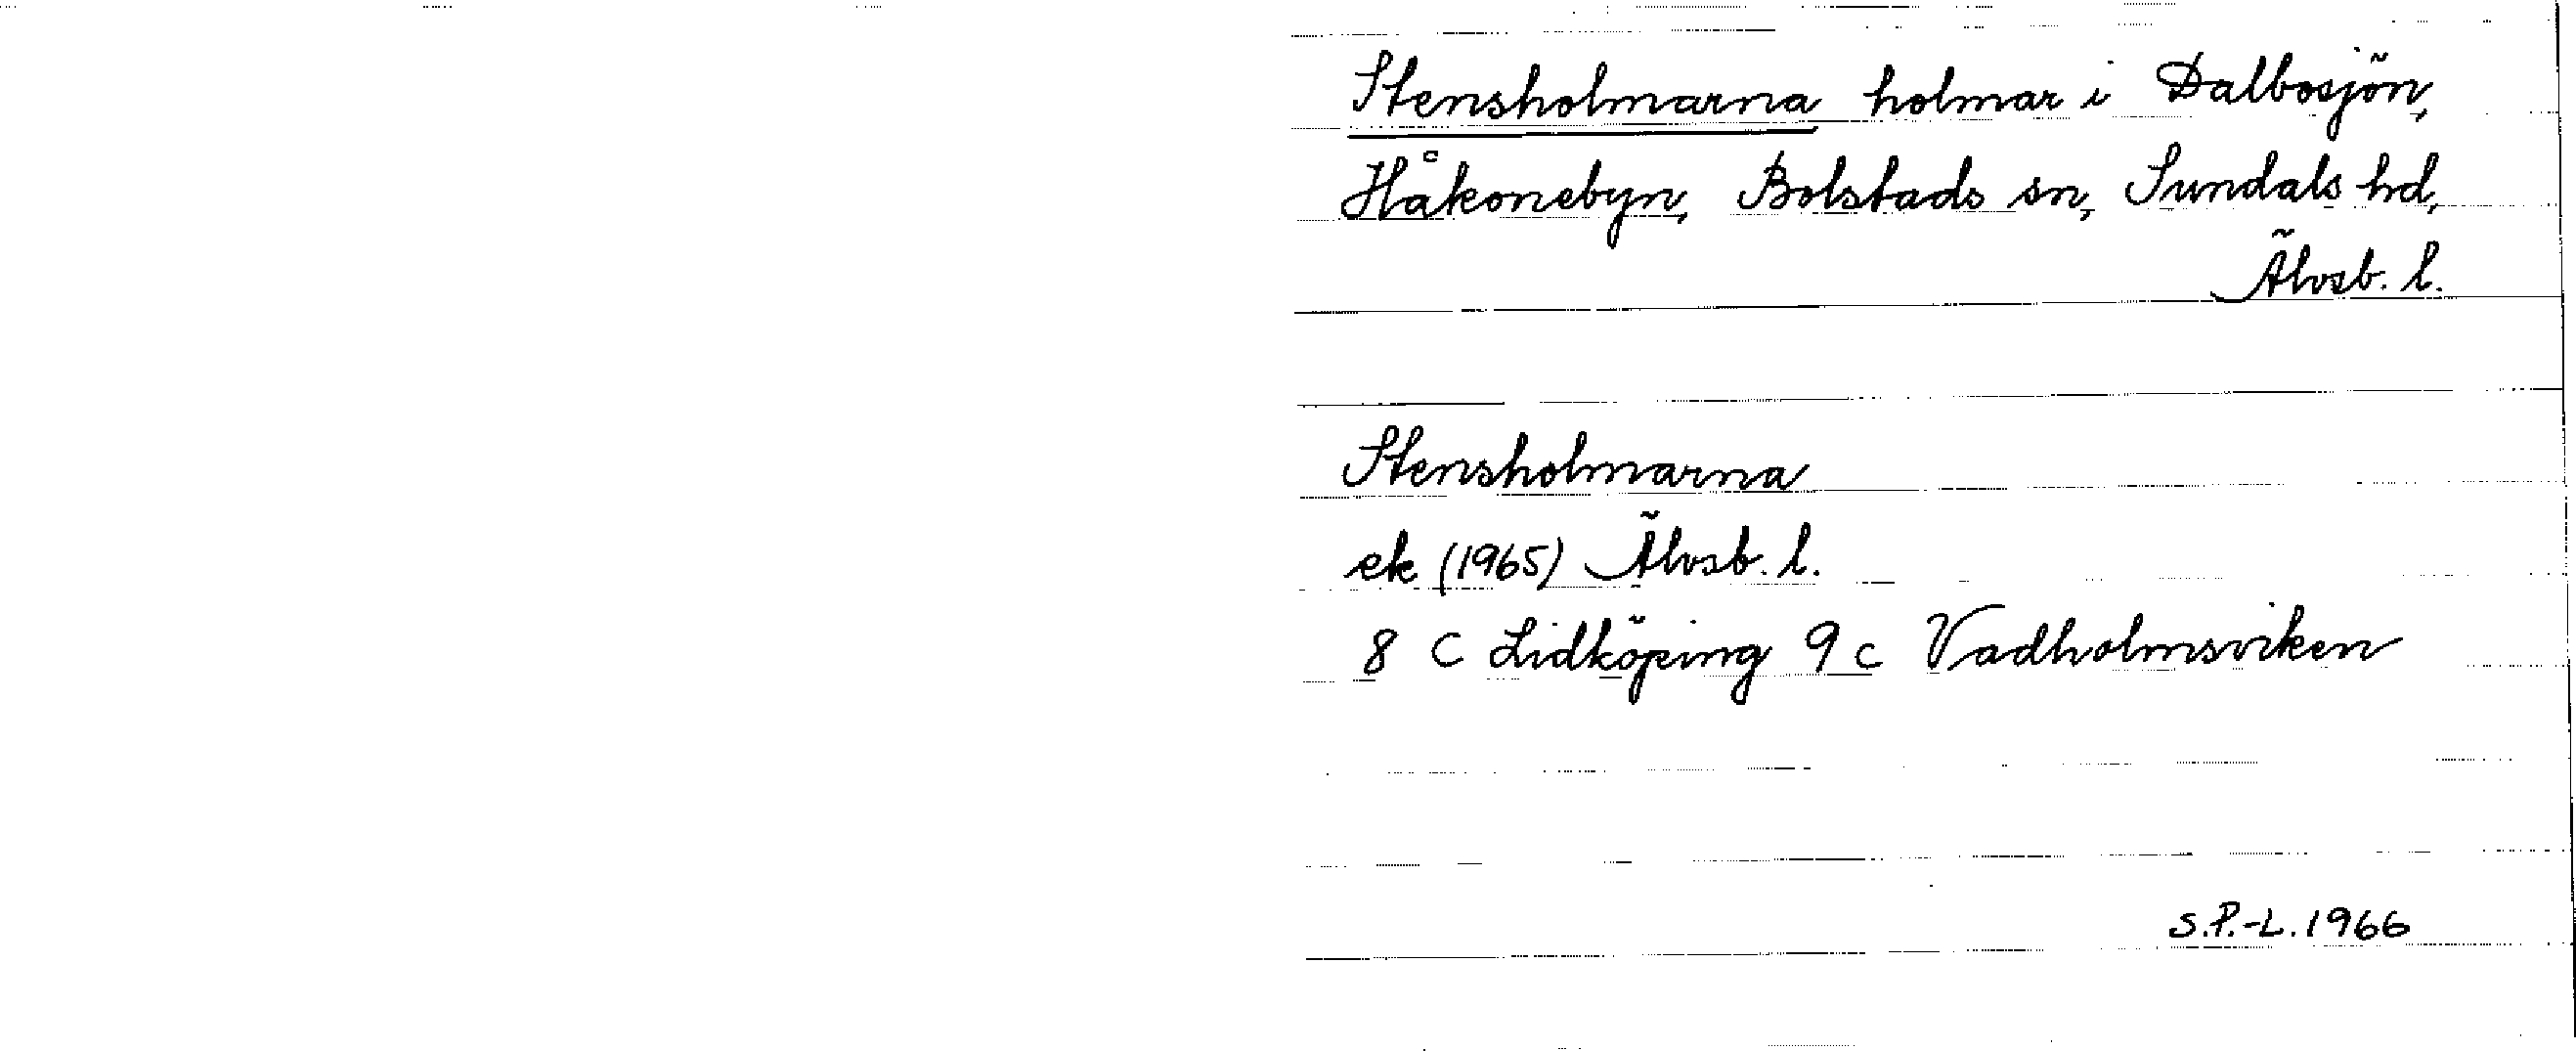 Stensholmarna holmar i Dalbosjön,
Håkonebyn, Bolstads sn, Sundals hd,
Älvsb. l.
Stensholmarna
ek (1965) Älvsb. l.
8 C Lidköping 9 c Vadholmsviken
S.P.-L. 1966